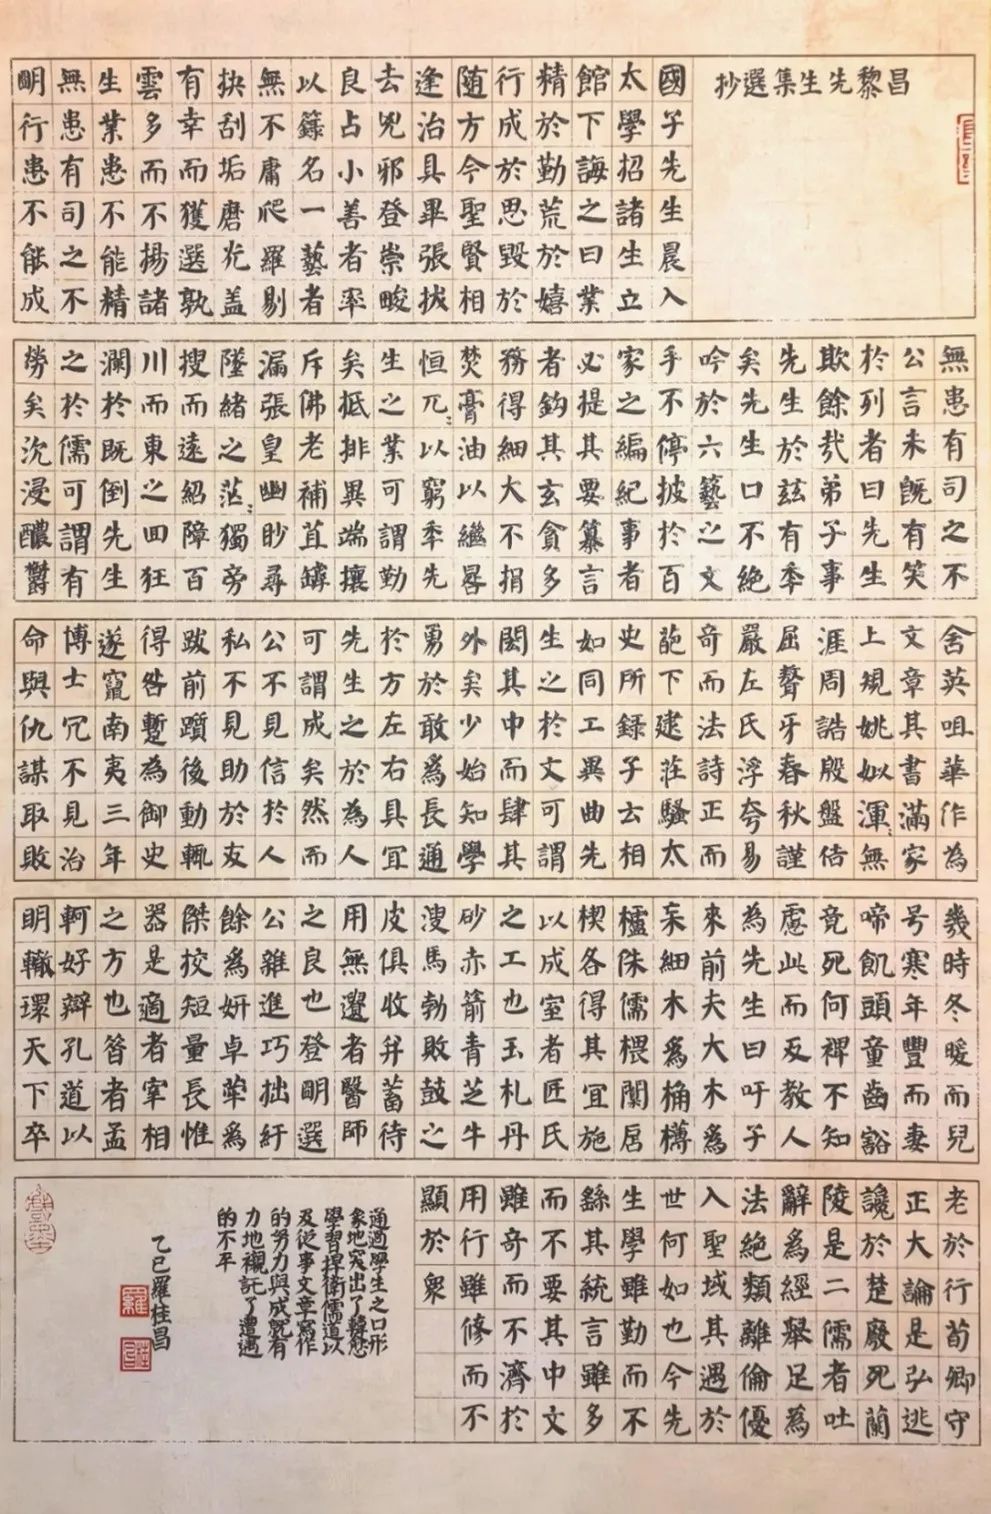 昌黎先生集選抄
國子先生晨入
太學招諸生立
館下誨之曰業
精於勤荒於嬉
行成於思毀於
随方今聖賢相
逢治具畢張拔
去兇邪登崇畯
良占小善者率
以錄名一藝者
無不庸爬羅剔
抉刮垢磨光盖
有幸而獲選孰
雲多而不揚諸
生業患不能精
無患有司之不
明行患不能成
無患有司之不
公言未既有笑
於列者曰先生
欺餘哉弟子事
先生於茲有年
矣先生口不絕
吟於六藝之文
手不停披於百
家之編紀事者
必提其要纂言
者鈎其玄貪多
務得細大不捐
焚膏油以繼晷
恒兀〻以窮年先
生之業可謂勤
矣抵排異端攘
斥佛老補苴罅
漏張皇幽眇尋
墜緒之茫〻獨旁
搜而遠紹障百
川而東之回狂
瀾於既倒先生
之於儒可謂有
勞矣沉浸醲鬱
含英咀華作為
文章其書滿家
上規姚姒渾〻無
涯周誥殷盤佶
屈聱牙春秋謹
嚴左氏浮夸易
奇而法詩正而
葩下逮莊騷太
史所録子云相
如同工異曲先
生之於文可謂
閎其中而肆其
外矣少始知學
勇於敢為長通
於方左右具宜
先生之於為人
可謂成矣然而
公不見信於人
私不見助於友
跋前躓後動輒
得咎暫為御史
遂竄南夷三年
博士冗不見治
命與仇謀取敗
幾時冬暖而兒
号寒年豐而妻
啼飢頭童齒豁
竟死何裨不知
慮此而反教人
為先生曰吁子
來前夫大木為
杗細木為桷欂
櫨侏儒椳闑扂
楔各得其宜施
以成室者匠氏
之工也玉札丹
砂赤箭青芝牛
溲馬勃敗鼓之
皮俱收并蓄待
用無遺者醫師
之良也登明選
公雜進巧拙紆
餘為妍卓犖為
傑校短量長惟
器是適者宰相
之方也昝者孟
軻好辯孔道以
明轍環天下卒
老於行荀卿守
正大論是弘逃
讒於楚廢死蘭
陵是二儒者吐
辭為經舉足為
法絕類離倫優
入聖域其遇於
世何如也今先
生學雖勤而不
繇其統言雖多
而不要其中文
雖奇而不濟於
用行雖修而不
顯於衆
通過學生之口形
象地突出了韓愈
學習捍衛儒道以
及從事文章寫作
的努力與成就有
力地襯託了遭遇
的不平
乙巳羅桂昌
羅